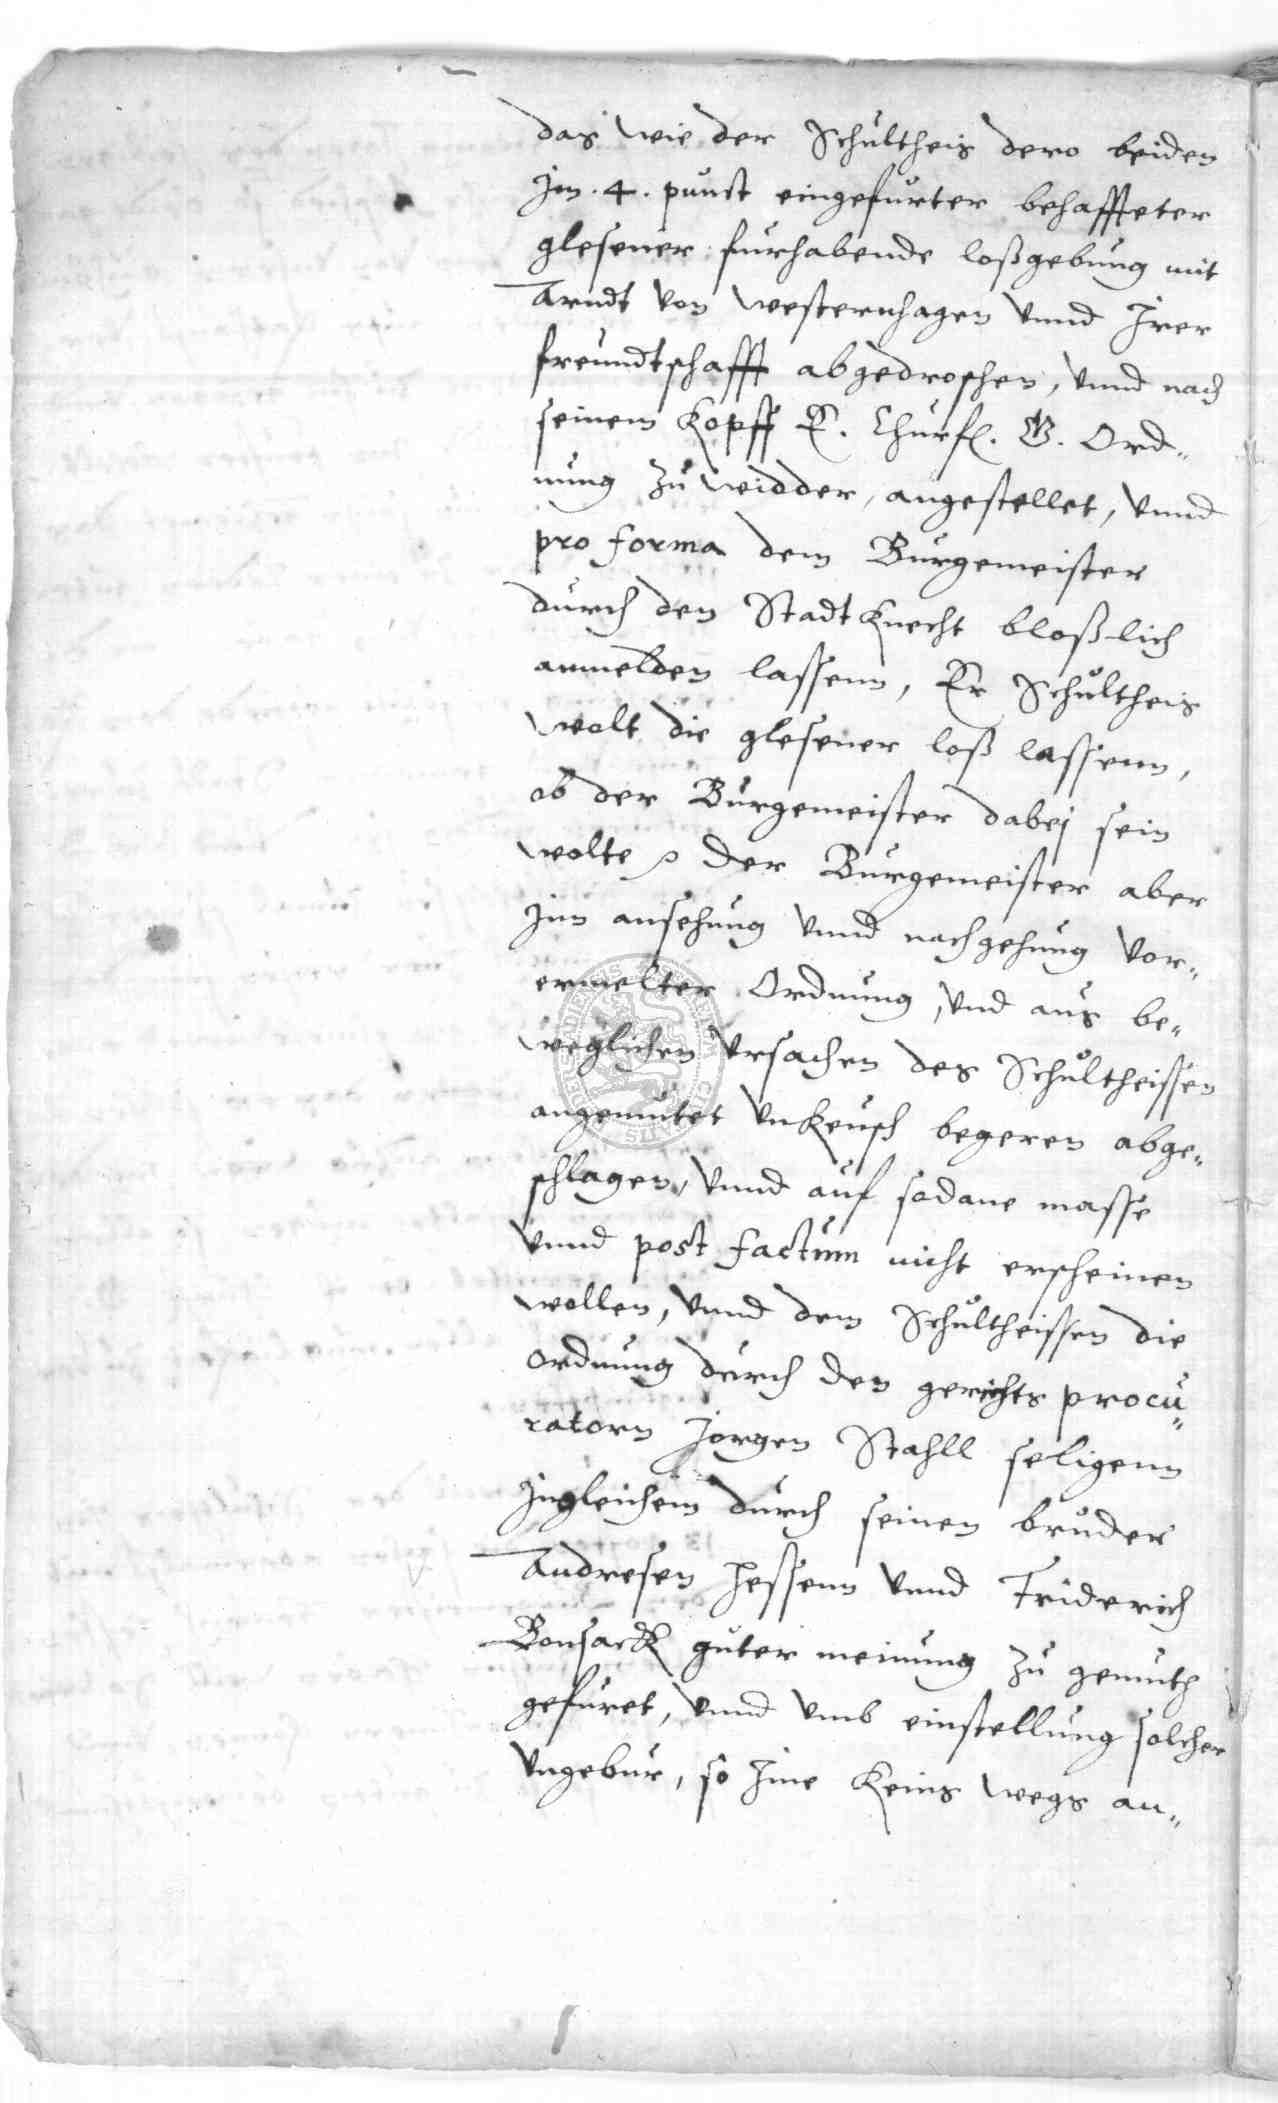 das wie der Schultheis dero beiden
Jm .4. punct eingefurter behaffteter
glesener furhabende loßgebung mit
Arndt von westernhagen vnnd Jrer
freundtschafft abgedroschen, vnnd nach
seinem Kopff E. Churf. G. Ord„
nung zu widder, angestellet, vnnd
pro forma dem Burgemeister
durch den Stadt Knecht bloßlich
anmelden lassenn, Er Schultheis
wolt die glesener loß lassenn,
ob der Burgemeister dabej sein
wolte, Der Burgemeister aber
Jnn ansehung vnnd nachgehung vor„
ermelter Ordnung, vnd aus be„
weglichen vrsachen des Schultheissen
angemutet vnkeusch begeren abge„
schlagen, vnnd auf sodane masse
vnnd post factum nicht erscheinen
wollen, vnnd dem Schultheissen die
ordnung durch den gerichts procu„
ratorn Jorgen Stahll seligenn
Jngleichem durch seinen bruder
Andresen Hessenn vnnd Friderich
Bonsack guter meinung zu gemuth
gefuret, vnnd vmb einstellung solcher
vngebur, so Jme Keins wegs an„